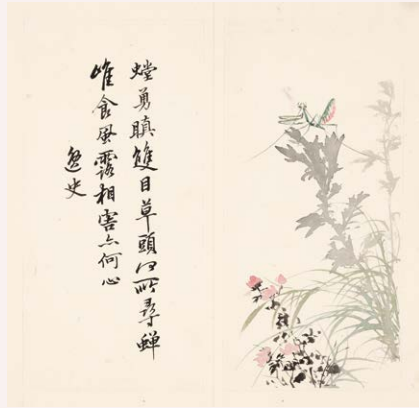 螳勇瞋雙目草頭何所尋蟬
唯食風露相害亦何心
逸史